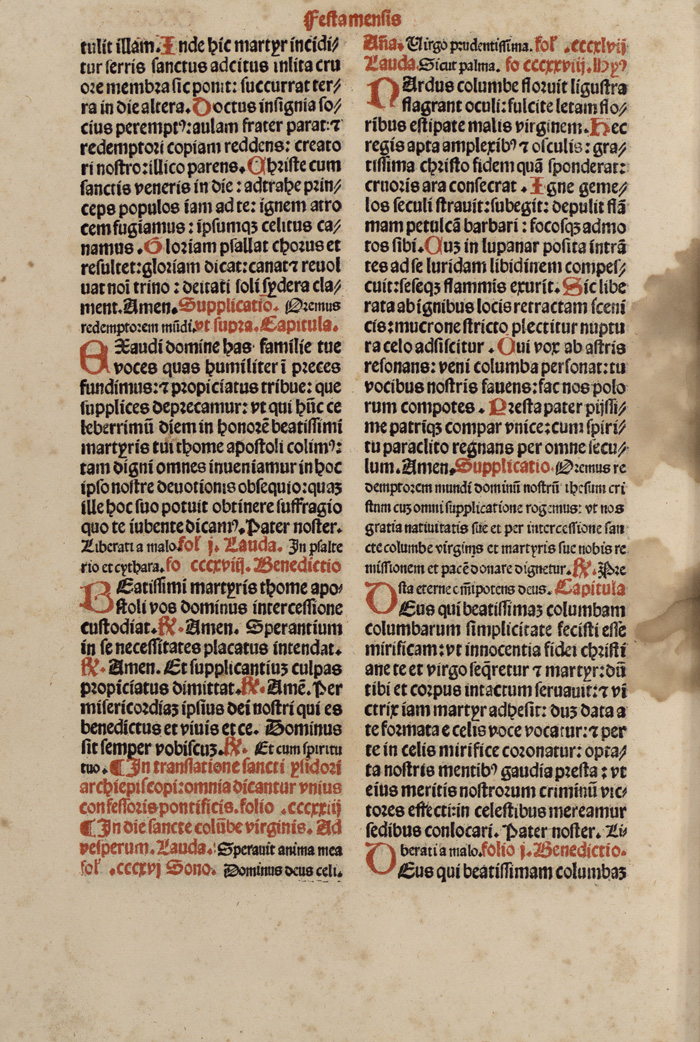 Festa mensis
tulit illam. Inde hic martyr incidi⸗
tur ferris sanctus adcitus inlita cru
ore membra sic ponit: succurrat ter⸗
ra in die altera. Doctus insignia so⸗
cius peremptꝰ: aulam frater parat: ⁊
redemptori copiam reddens: creato
ri nostro: illico parens. Christe cum
sanctis veneris in die: adtrahe prin⸗
ceps populos iam ad te: ignem atro
cem fugiamus: ipsumqꝫ celitus ca⸗
namus. Gloriam psallat chorus et
resultet: gloriam dicat: canat ⁊ reuol
uat noī trino: deitati soli sydera cla⸗
ment. Amen. Supplicatio. Oremus
redemptorem mūdi. vt supra. Capitula.
EXaudi domine has familie tue
voces quas humiliter ī preces
fundimus: ⁊ propiciatus tribue: que
supplices deprecamur: vt qui hūc ce
leberrimū diem in honorē beatissimi
martyris tui thome apostoli colimꝰ:
tam digni omnes inueniamur in hoc
ipso nostre deuotionis obsequio: quaꝫ
ille hoc suo potuit obtinere suffragio
quo te iubente dicamꝰ. Pater noster.
Liberati a malo. fol̓ j. Lauda. In psalte
rio et cythara. fo cccxviij. Benedictio
BEatissimi martyris thome apo⸗
stoli vos dominus intercessione
custodiat. ℟. Amen. Sperantium
in se necessitates placatus intendat.
℟. Amen. Et supplicantiuꝫ culpas
propiciatus dimittat. ℟. Amē. Per
misericordiaꝫ ipsius dei nostri qui es
benedictus et viuis et ce. Dominus
sit semper vobiscuꝫ. ℟. Et cum spiritu
tuo. ¶ In translatione sancti ysidori
archiepiscopi: omnia dicantur vnius
confessoris pontificis. folio .cccxxiij
¶ In die sancte colūbe virginis. Ad
vesperum. Lauda. Sperauit anima mea
fol̓ .cccxvj Sono. Dominus deus celi.
Aña. Virgo prudentissima. fol̓ .cccxlvij
Lauda. Sicut palma. fo cccxxviij. Hyꝰ
NArdus columbe floruit ligustra
flagrant oculi: fulcite letam flo⸗
ribus estipate malis virginem. Hec
regis apta amplexibꝰ ⁊ osculis: gra⸗
tissima christo fidem quā sponderat:
cruoris ara consecrat. Igne geme⸗
los seculi strauit: subegit: depulit flā
mam petulcā barbari: focosqꝫ admo
tos sibi. Quꝫ in lupanar posita intrā
tes ad se luridam libidinem compes⸗
cuit: seseqꝫ flammis exurit. Sic libe
rata ab ignibus locis retractam sceni
cis: mucrone stricto plectitur nuptu
ra celo adsiscitur. Qui vox ab astris
resonans: veni columba personat: tu
vocibus nostris fauens: fac nos polo
rum compotes. Presta pater pijssi⸗
me patriqꝫ compar vnice: cum spiri⸗
tu paraclito regnans per omne secu⸗
lum. Amen. Supplicatio. Oremus re
demptorem mundi dominū nostrū ihesum cri
stum cuꝫ omni supplicatione rogemus: vt nos
gratia natiuitatis sue et per intercessione san
cte columbe virginis et martyris sue nobis re
missionem et pacē donare dignetur. ℟. Pre
sta eterne oīpotens deus. Capitula
DEus qui beatissimaꝫ columbam
columbarum simplicitate fecisti esse
mirificam: vt innocentia fidei christi
ane te et virgo seq̄retur ⁊ martyr: dū
tibi et corpus intactum seruauit: ⁊ vi
ctrix iam martyr adhesit: duꝫ data a
te formata e celis voce vocatur: ⁊ per
te in celis mirifice coronatur: opta⸗
ta nostris mentibꝰ gaudia presta: vt
eius meritis nostrorum criminū vic⸗
tores effecti: in celestibus mereamur
sedibus conlocari. Pater noster. Li⸗
berati a malo. folio j. Benedictio.
DEus qui beatissimam columbaꝫ